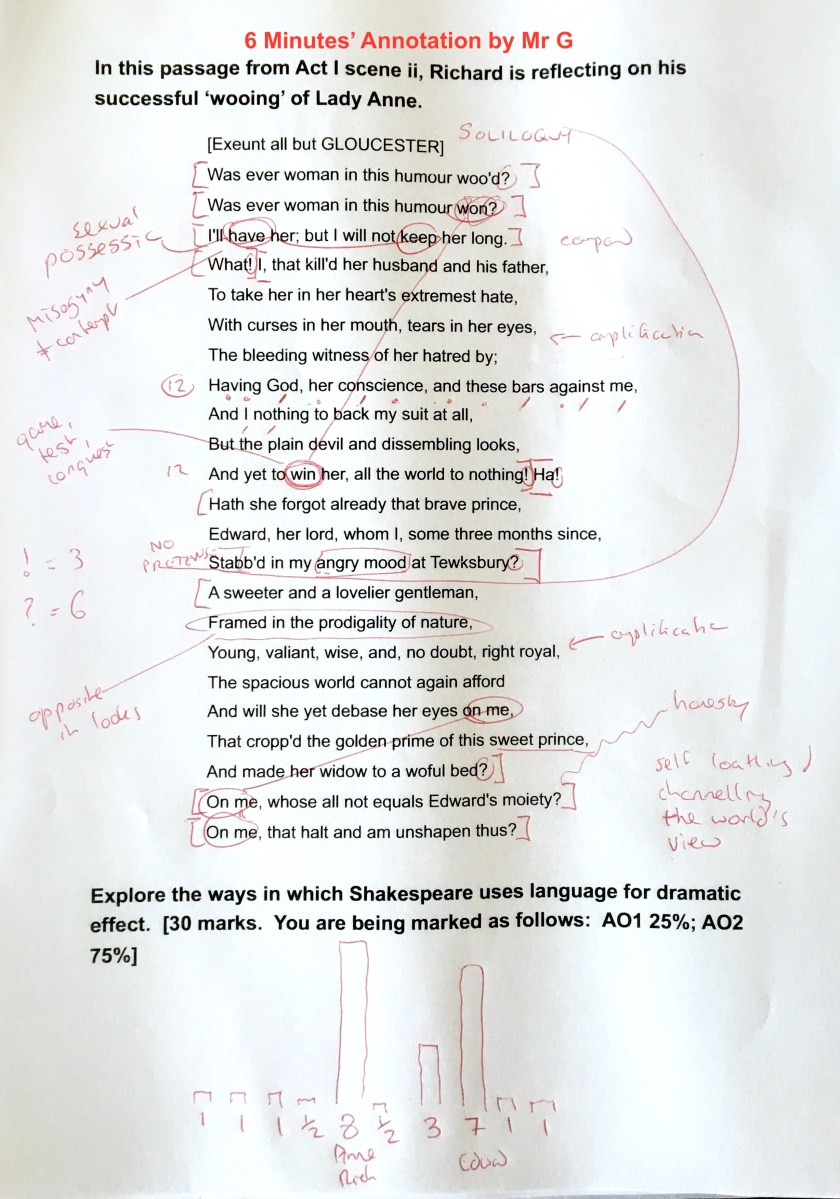 6 Minutes’ Annotation by Mr G
In this passage from Act I scene ii, Richard is reflecting on his
successful ‘wooing’ of Lady Anne.
SOLILOQUY
[Exeunt all but GLOUCESTER]
Was ever woman in this humour woo'd?
Was ever woman in this humour won?
sexual
possessio
I'll have her; but I will not keep her long.
What! I, that kill'd her husband and his father,
misogyny
+ contempt
To take her in her heart's extremest hate,
With curses in her mouth, tears in her eyes,
amplification
The bleeding witness of her hatred by;
12
Having God, her conscience, and these bars against me,
And I nothing to back my suit at all,
game,
test,
conquest
But the plain devil and dissembling looks,
12
And yet to win her, all the world to nothing! Ha!
Hath she forgot already that brave prince,
Edward, her lord, whom I, some three months since,
NO
! = 3
Stabb'd in my angry mood at Tewksbury?
A sweeter and a lovelier gentleman,
? = 6
Framed in the prodigality of nature,
Young, valiant, wise, and, no doubt, right royal,
amplificatio
The spacious world cannot again afford
opposite
in looks
And will she yet debase her eyes on me,
honesty
That cropp'd the golden prime of this sweet prince,
And made her widow to a woful bed?
self loathing /
channelling
the world's
view
On me, whose all not equals Edward's moiety?
On me, that halt and am unshapen thus?
Explore the ways in which Shakespeare uses language for dramatic
effect. [30 marks. You are being marked as follows: AO1 25%; AO2
75%]
1 1 1 ½ 8 ½ 3 7 1 1
Anne
Rich
Edw